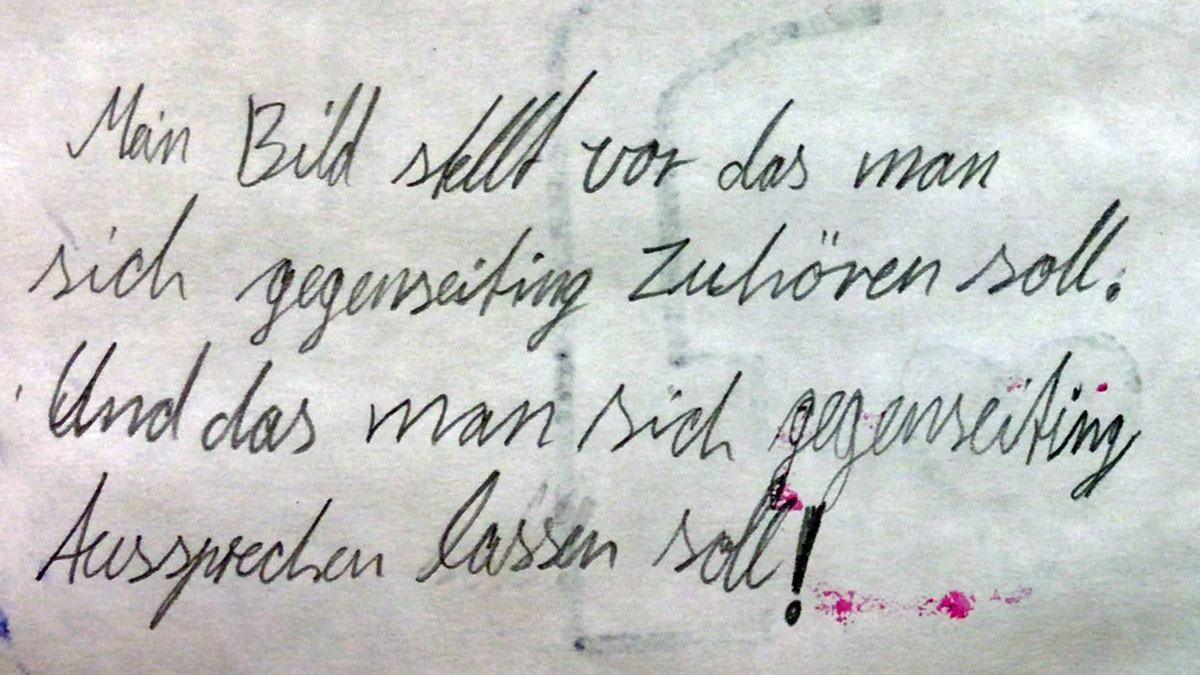 Mein Bild stellt vor das man
sich gegenseiting Zuhören soll.
Und das man sich gegenseiting
Aussprechen lassen soll!